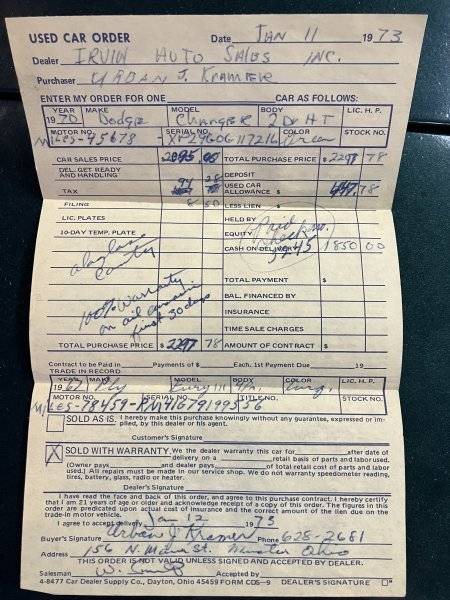 USED CAR ORDER Date JAN 11 1973
Dealer IRVIN AUTO SALES INC.
Purchaser URBAN J. KRAMER
ENTER MY ORDER FOR ONE CAR AS FOLLOWS:
YEAR MAKE MODEL BODY LIC. H. P.
1970 Dodge CHARGER 2 Dr HT
MOTOR NO. SERIAL NO. COLOR STOCK NO.
Miles-45673 XP29G0G117216 Green
CAR SALES PRICE $2095.00 TOTAL PURCHASE PRICE $2297 78
DEL. GET READY AND HANDLING DEPOSIT
TAX 94 28 USED CAR ALLOWANCE $ 447.78
FILING 8 50 LESS LIEN $
LIC. PLATES HELD BY
10-DAY TEMP. PLATE EQUITY
Paid check no. 5245
CASH ON DELIVERY 1850 00
Auglaize County
TOTAL PAYMENT $
100% Warranty on
BAL. FINANCED BY
first 30 days
INSURANCE
TIME SALE CHARGES
TOTAL PURCHASE PRICE $2297 78 AMOUNT OF CONTRACT $
Contract to be Paid in Payments of $ Each. 1st Payment Due 19
TRADE IN RECORD
YEAR MAKE MODEL BODY COLOR LIC. H. P.
1967 Ply Fury III
MOTOR NO. SERIAL NO. TITLE NO. STOCK NO.
Miles-78459-
SOLD AS IS I hereby make this purchase knowingly without any guarantee, expressed or implied, by this dealer or his agent.
Customer's Signature
X SOLD WITH WARRANTY. We the dealer warranty this car for after date of
delivery on a retail basis of parts and labor used.
(Owner pays and dealer pays of total retail cost of parts and labor
used.) All repairs must be made in our service shop. We do not warranty speedometer reading,
tires, battery, glass, radio or heater.
Dealer's Signature
I have read the face and back of this order, and agree to this purchase contract. I hereby certify
that I am 21 years of age or older and acknowledge receipt of a copy of this order. The figures in this
order are predicated upon actual cost of insurance and the correct amount of the lien due on the
trade-in motor vehicle.
I agree to accept delivery Jan 12 1973
Buyer's Signature Urban J Kramer Phone 628-2681
Address 156 N. Main St. Minster Ohio
THIS ORDER IS NOT VALID UNLESS SIGNED AND ACCEPTED BY DEALER.
Salesman Accepted by
4-8477 Car Dealer Supply Co., Dayton, Ohio 45459 FORM CDS-9 DEALER'S SIGNATURE